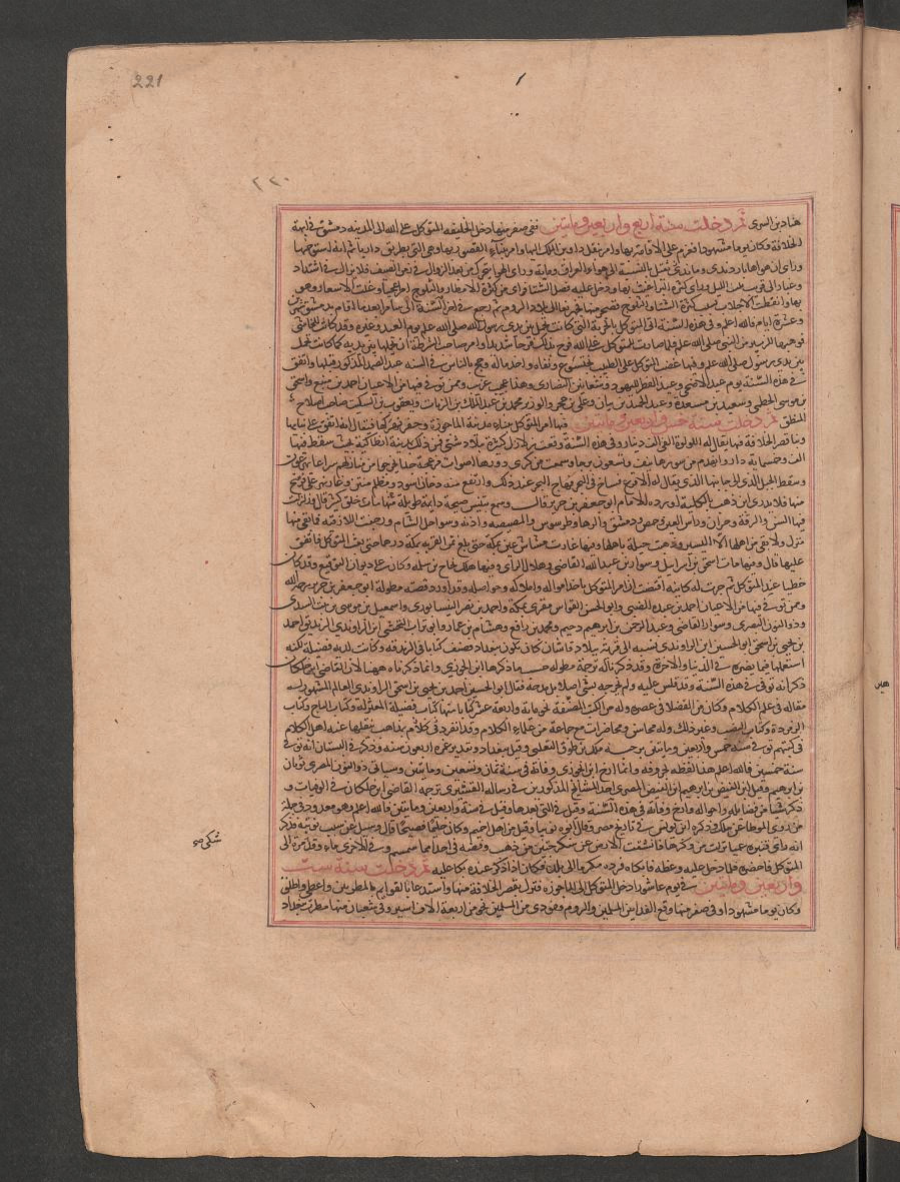 221
٢٢٠
هناد بن السرى ثم دخلت سنة اربع واربعين ومايتين ففى صفر منها دخل الخليفه المتوكل على الله الى المدينه دمشق فى ابهة
الخلافة وكان يوما مشهودا عزم على الاقامة بها وامر بنقل دواوين الملك اليها وامر ببناء القصور بها التى بطريق داريا ثم انه استوخمها
وراى ان هواها بارد ندى وماءها ثقيل بالنسبة الى هوا العراق ومايه وراى الهوا يتحرك من بعد الزوال فى زمن الصيف فلا يزال فى اشتداد
وغبار الى قريب ثلث الليل وراى كثرة البراغيث بها ودخل عليه فصل الشتا فراى من كثرة الامطار والثلوج امرا عجيبا وغلت الاسعار وهو
بها وانقطعت الاجلاب بسبب كثرة الثلوج فضجر منها ثم رجع فى اخر السنة الى سامرا بعد ما اقام بدمشق شهرين
وعشرة ايام فالله اعلم وفى هذه السنة اتى المتوكل بالحربة التى كانت تحمل بين يدى رسول الله صلى الله عليه يوم العيد وغيره وقد كانت للنجاشى
فوهبها للزبير من النبى صلى الله عليه فلما صارت للمتوكل على الله فرح بذلك فرحا شديدا وامر صاحب الشرطة ان يحملها بين يديه كما كانت تحمل
بين يدى رسول الله صلى الله عليه وفيها غضب المتوكل على الطبيب بختيشوع ونفاه واخذ ماله وحج بالناس فى السنه عبد الصمد المذكور قبلها واتفق
فى هذه السنة يوم عيد الاضحى وعيد الفطر لليهود وشعانين النصارى وهذا عجيب غريب وممن توفى فيها من الاعيان احمد بن منيع واسحق
بن موسى الخطمى وحميد بن مسعدة وعبد الحميد بن بيان وعلى بن حجر والوزير محمد بن عبد الملك بن الزيات ويعقوب بن السكيت صاحب اصلاح
المنطق ثم دخلت سنة خمس واربعين ومايتين فيها امر المتوكل ببناء مدينة الماحوزة وحفر نهرها فيقال انه انفق على بنايها
وبنا قصر الخلافة فيها يقال له اللولوة الفى الف دينار وفى هذه السنة وقعت زلازل كثيرة ببلاد شتى فمن ذلك بمدينة انطاكية بحيث سقط فيها
الف وخمسماية دار وانهدم من سورها نيف وتسعون برجا وسمعت من كوى دورها اصوات مزعجة جدا فخرجوا من منازلهم سراعا يهرعون
وسقط الجبل الذى الى جانبها الذى يقال له الاقرع فساخ فى البحر فهاج البحر عند ذلك وارتفع منه دخان اسود مظلم منتن وغار نهر على فرسخ
منها فلا يدرى اين ذهب بالكلية اورده للامام ابو جعفر بن جرير قال وسمع بتنيس صيحة دايمة طويلة مات منها خلق كثير قال وزلزلت
فيها السن والرقة وحران وراس العين وحمص ودمشق والرها وطرسوس والمصيصه واذنه وسواحل الشام ورجفت اللاذقيه فما بقى منها
منزل ولا بقى من اهلها الا اليسير وذهبت جبلة باهلها وفيها غارت مشاش عين بمكة حتى بلغ ثمن القربه بمكة درهما حتى بعث المتوكل فانفق
عليها قال وفيها مات اسحق بن ابى اسراييل وسوار بن عبد الله القاضى وهلال الراى وفيها هلك نجاح بن سلمه وكان على ديوان التوقيع وقد كان
خطيا عند المتوكل ثم جرت له كاينة افضت الى امر المتوكل باخذ امواله واملاكه وحواصله وقد اورد قصته مطولة ابو جعفر بن جرير رحمه الله
وممن توفى فيها من الاعيان احمد بن عبدة الضبى وابو الحسن القواس مقرى مكة واحمد بن نصر النيسابورى واسمعيل بن موسى بن بنت السدى
وذو النون المصرى وسوار القاضى وعبد الرحمن بن ابرهيم دحيم ومحمد بن رافع وهشام بن عمار وابو تراب النخشبى ابن الراوندى الزنديق احمد
بن يحيى بن اسحق ابو الحسين ابن الراوندى نسبه الى قرية ببلاد قاشان كان يكون ببغداد صنف كتابا فى الزندقه وكانت لديه فضيلة لكنه
استعملها فيما يضره فى الدنيا والاخرة وقد ذكرنا له ترجمة مطوله حسب ما ذكرها ابن الجوزى وانما ذكرناه ههنا لان القاضى ابن خلكان
ذكر انه توفى فى هذه السنة وقد تلبس عليه ولم يخرجه بشى اصلا بل مدحه فقال ابو الحسين احمد بن يحيى بن اسحق الراوندى العالم المشهور له
مقاله فى علم الكلام وكان من الفضلا فى عصره وله من الكتب المصنفة نحو ماية واربعة عشر كتابا منها كتاب فضيحة المعتزلة وكتاب التاج وكتاب
الزمرده وكتاب القصب وغير ذلك وله محاسن ومحاضرات مع جماعة من علماء الكلام وقد انفرد فى كلام بمذاهب نقلها عنه اهل الكلام
فى كتبهم توفى سنة خمس واربعين ومايتين برحبة ملك بن طوق التغلبى وقيل ببغداد وتقدير عمره اربعون سنه وذكر فى البستان انه توفى
سنة خمسين فالله اعلم هذا لفظه بحروفه وانما ارخ ابن الجوزى وفاته فى سنة ثمان وتسعين ومايتين وسياتى ذو النون المصرى ثوبان
بن ابرهيم وقيل ابن الفيض بن ابرهيم ابو الفيض المصرى احد المشايخ المذكورين فى رساله القشيرى ترجمه القاضى ابن خلكان فى الوفيات و
ذكر شيا من فضايله واحواله وارخ وفاته فى هذه السنة وقيل فى التى بعدها وقيل فى سنة واربعين ومايتين فالله اعلم وهو معدود فى جملة
من روى الموطا عن ملك وذكره ابن يونس فى تاريخ مصر وقال ابوه نوبيا وقيل من اهل اخميم وكان حكيما فصيحا قال وسيل عن سبب توبته فذكر
انه راى قنبرة عمياء نزلت من وكرها فانشقت الارض عن سكرجتين من ذهب وفضه فى احداهما سمسم وفى الاخرى ماء وقدم مرة الى
المتوكل فاحضره فلما دخل عليه وعظه فابكاه فرده مكرما الى بلده فكان اذا ذكر عنده بكا عليه ثم دخلت سنة ست
واربعين ومايتين فى يوم عاشورا دخل المتوكل الى الماحوزه فنزل بقصر الخلافة منها واستدعا بالقرا ثم بالمطربين واعطى واطلق
وكان يوما مشهودا وفى صفر منها وقع الفدا بين المسلمين والروم وفودى من المسلمين نحو من اربعة الاف اسير وفى شعبان منها مطرت بغداد